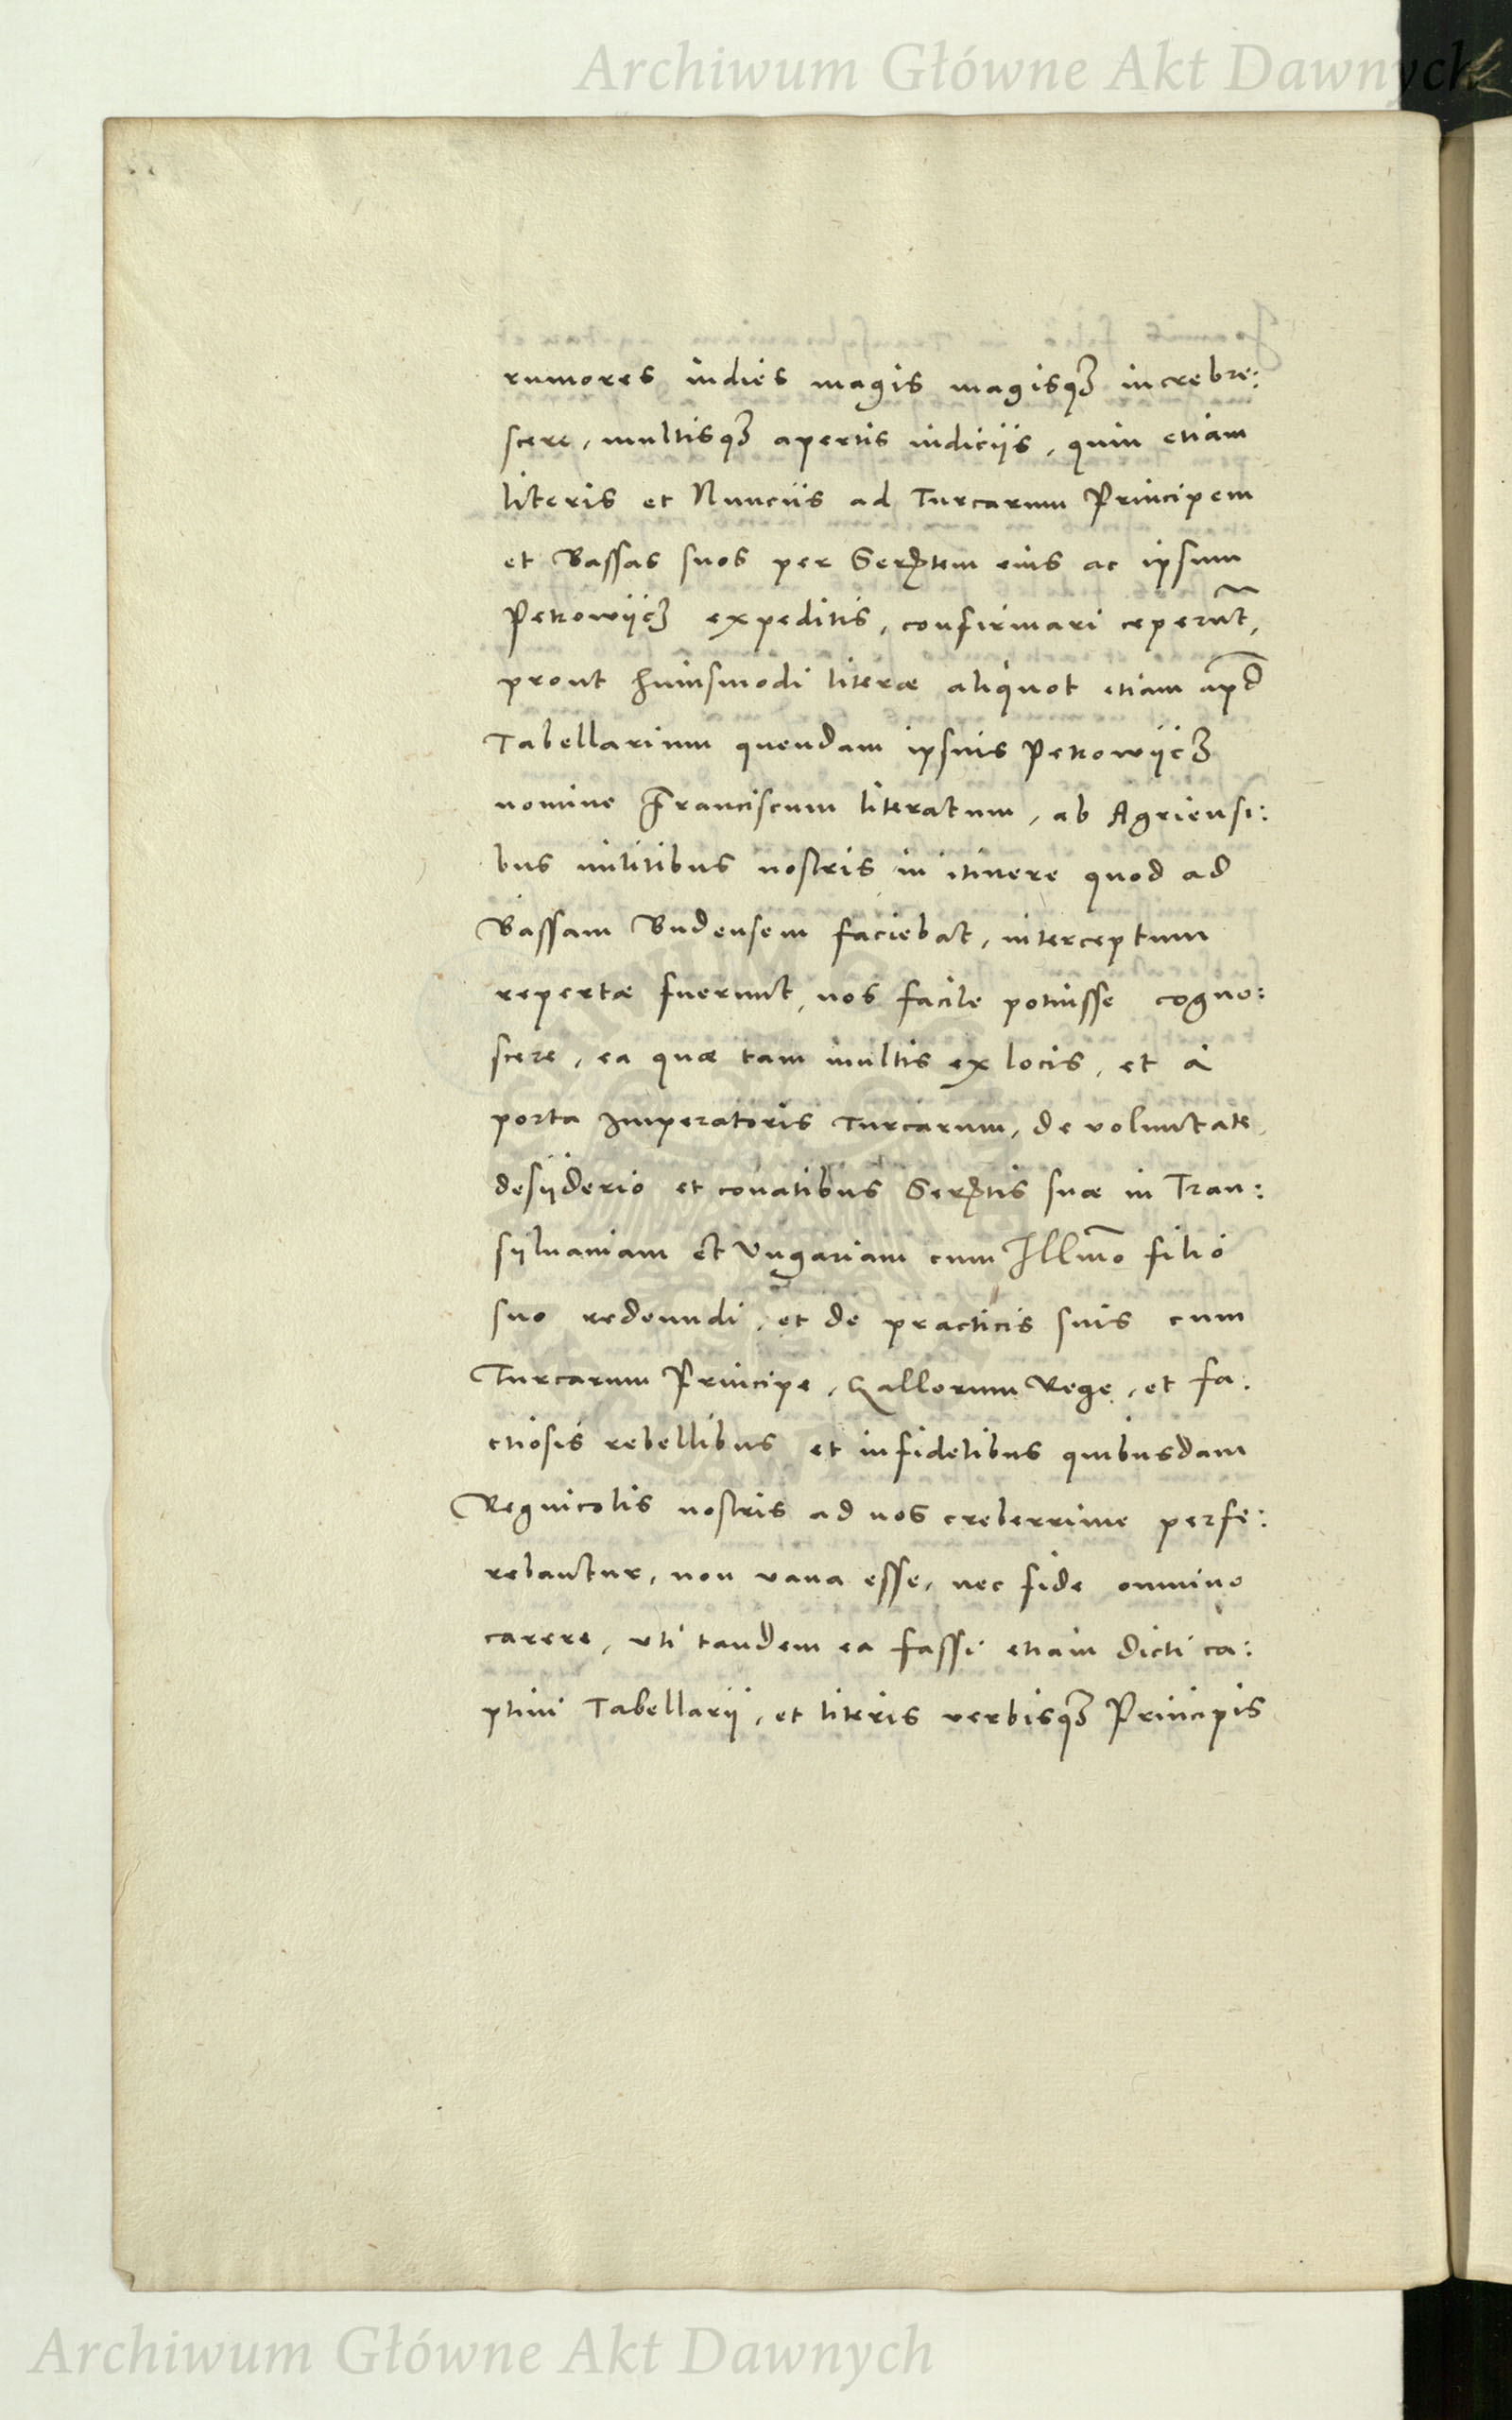 Archiwum Główne Akt Dawnych
rumores indies magis magisqȝ increbre:
scere, multisqȝ apertis indicijs, quin etiam
literis et Nuncijs ad Turcarum Principem
et Bassas suos per Serᵗᵉᵐ eius ac ipsum
Petrowijcȝ expeditis, confirmari ceperūt,
prout huiusmodi literæ aliquot etiam apd̄
Tabellarium quendam ipsius Petrowijcȝ
nomine Franciscum literatum, ab Agriensi:
bus militibus nostris in itinere quod ad
Bassam Budensem faciebat, interceptum
repertæ fuerunt, nos facile potuisse cogno:
scere, ea quæ tam multis ex locis, et à
porta Imperatoris Turcarum, de voluntate
desijderio et conatibus Serᵗⁱˢ suæ in Tran:
sylvaniam et Vngariam cum Illm̄o filio
suo redeundi, et de practicis suis cum
Turcarum Principe, Gallorum Rege, et fa:
ctiosis rebellibus et infidelibus quibusdam
Regnicolis nostris ad nos creberrime perfe:
rebantur, non vana esse, nec fide omnino
carere, vti tandem ea fassi etiam dicti ca:
ptiui Tabellarij, et literis verbisqȝ Principis
Archiwum Główne Akt Dawnych